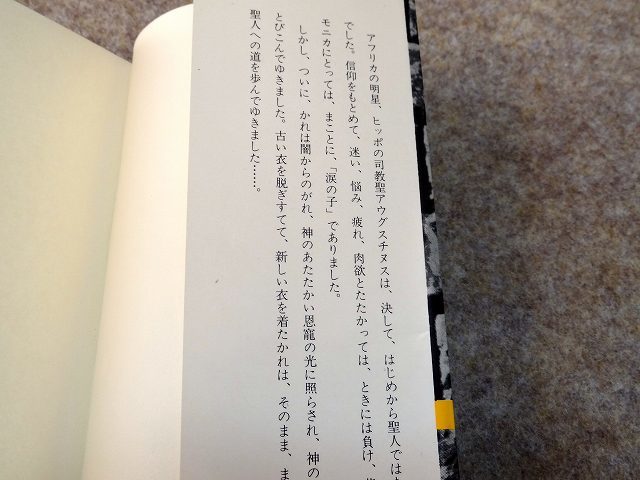 アフリカの明星、ヒッポの司教聖アウグスチヌスは、決して、はじめから聖人ではま
でした。信仰をもとめて、迷い、悩み、疲れ、肉欲とたたかっては、ときには負け、
モニカにとっては、まことに、「涙の子」でありました。
しかし、ついに、かれは闇からのがれ、神のあたたかい恩寵の光に照らされ、神の
とびこんでゆきました。古い衣を脱ぎすてて、新しい衣を着たかれは、そのまま、ま
聖人への道を歩んでゆきました……。